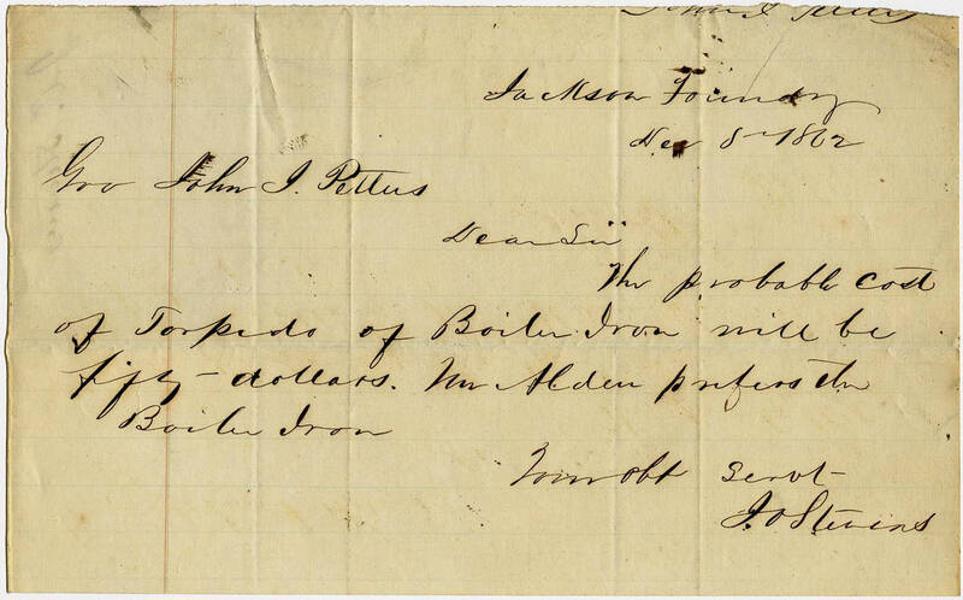 Jackson Foundry
Dec 8th 1862
Gov John J. Pettus
Dear Sir
The probable cost
of Torpedo of Boiler Iron will be
fifty dollars. Mr Alden prefers the
Boiler Iron
Your obt Servt
J. O Stevens